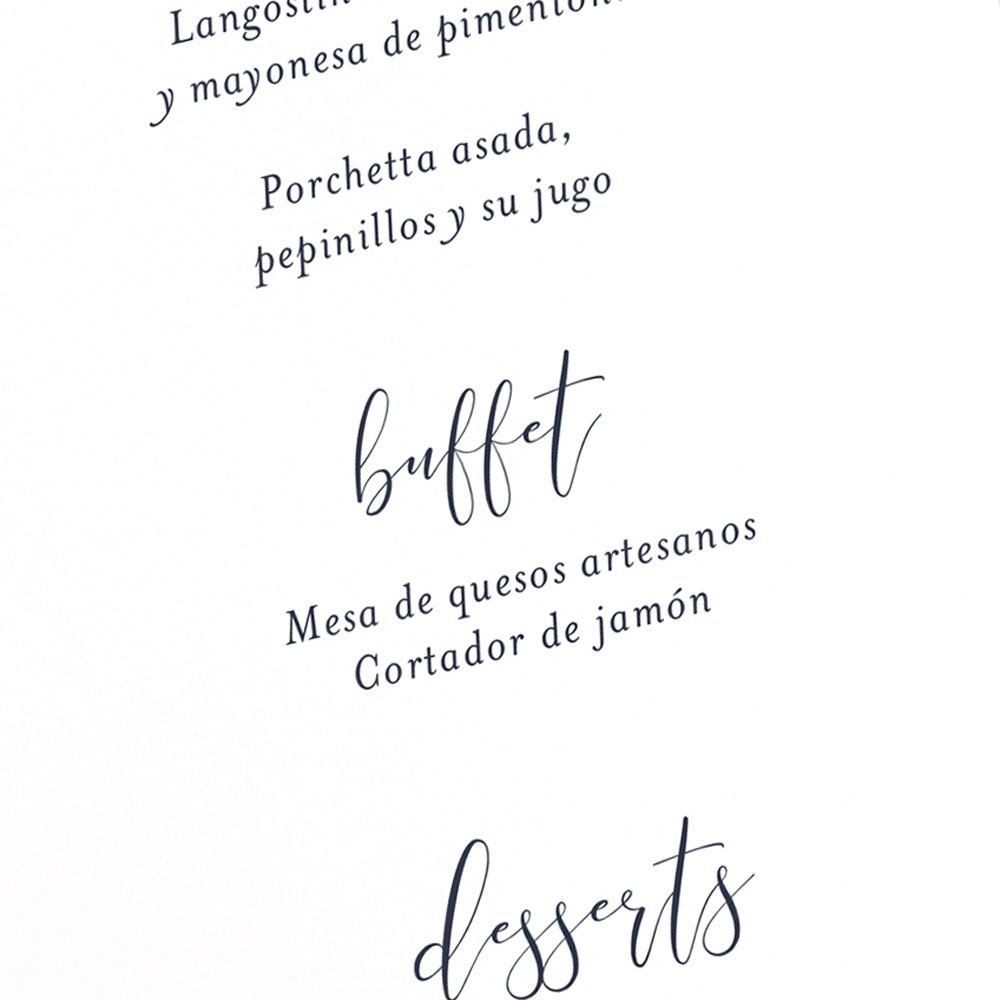 y mayonesa de
Porchetta asada,
pepinillos y su jugo
buffet
Mesa de quesos artesanos
Cortador de jamón
desserts